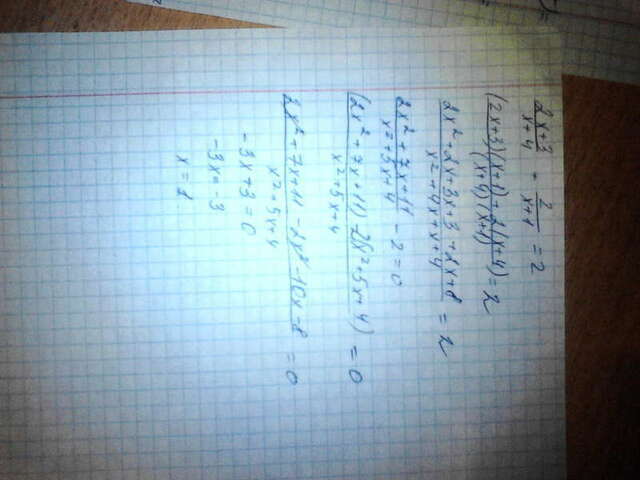 (2x+3)/(x+4) + 2/(x+1) = 2
((2x+3)(x+1)+2(x+4))/((x+4)(x+1)) = 2
(2x²+2x+3x+3+2x+8)/(x²+4x+x+4) = 2
(2x²+7x+11)/(x²+5x+4) - 2 = 0
((2x²+7x+11)-2(x²+5x+4))/(x²+5x+4) = 0
(2x²+7x+11-2x²-10x-8)/(x²+5x+4) = 0
-3x+3=0
-3x=-3
x=1